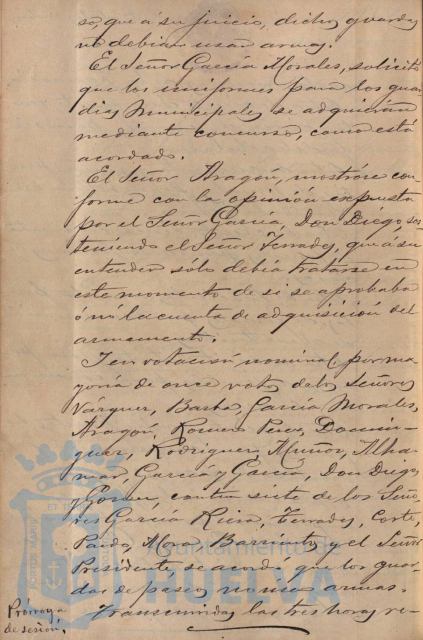 so, que á su juicio, dichos guardas
no debian usar armas.
El Señor García Morales, solicitó
que los uniformes para los guar-
dias Municipales se adquirieran
mediante concurso, como está
acordado.
El Señor Aragón, mostróse con-
forme con la opinión expuesta
por el Señor García, Don Diego, sos-
teniendo el Señor Terrades, que á su
entender solo debia tratarse en
este momento de si se aprobaba
ó nó la cuenta de adquisición del
armamento.
I en votación nominal, por ma-
yoria de once votos de los Señores
Vázquez, Barba, García Morales,
Aragón, Romero Perez, Domin-
guez, Rodriguez, Muñoz, Alha-
mar García y García, Don Diego,
y Gómez, contra siete de los Seño-
res García Riera, Terrades, Corte,
Mora Barrientos y el Señor
Presidente se acordó que los guar-
das de paseos no usen armas.
Transcurridas las tres horas re-
Prórroga
de sesión.
Ayuntamiento de
HUELVA